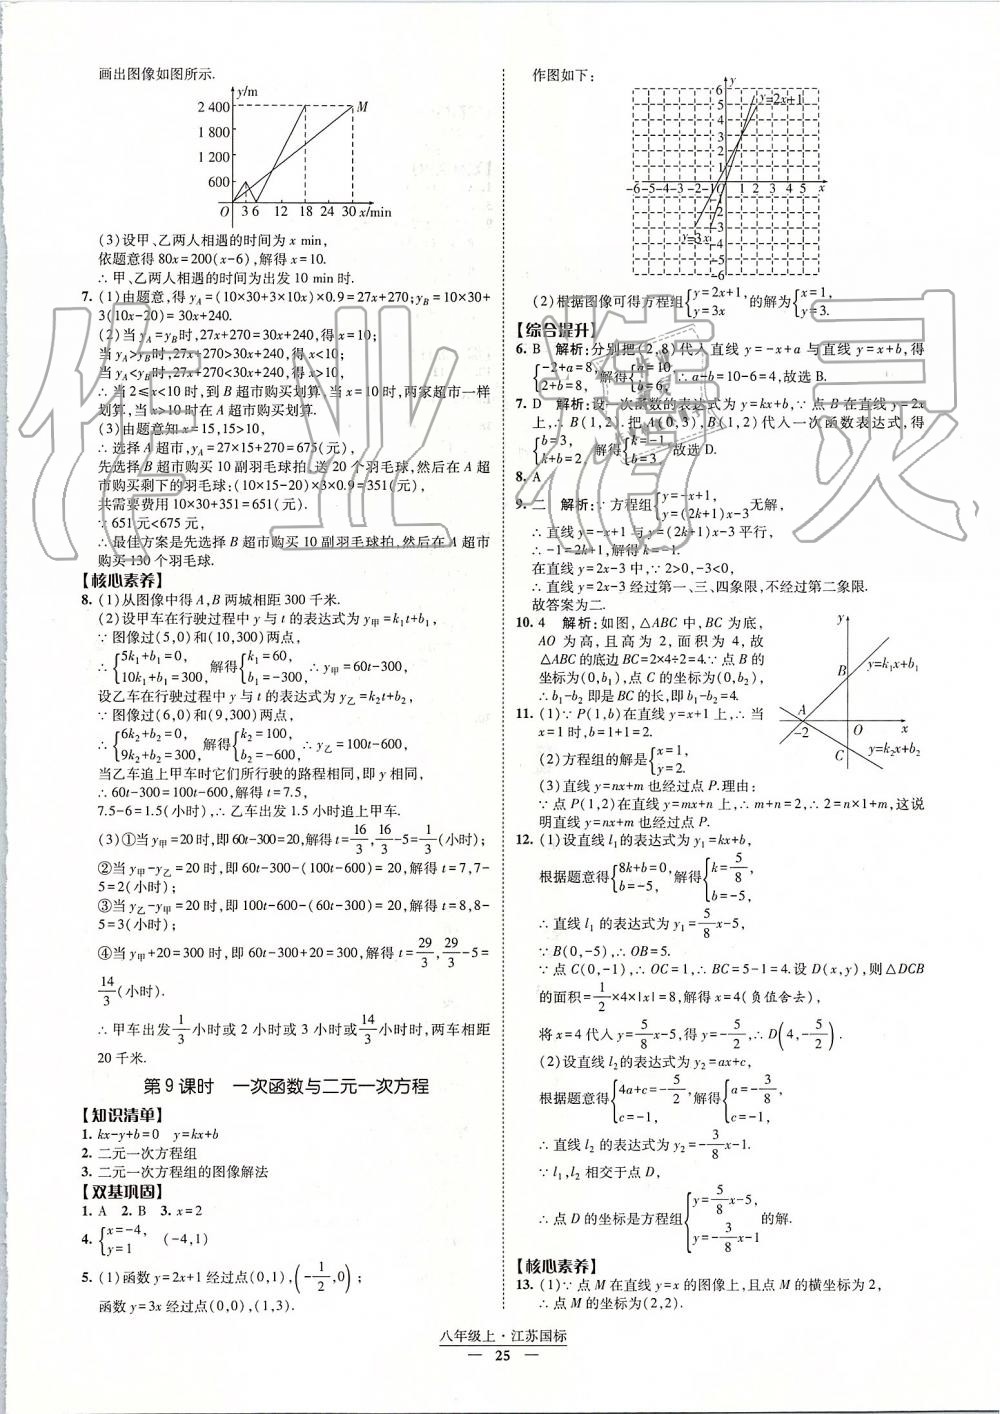 画出图像如图所示.
y/m
2 400
M
1 800
1 200
600
O 3 6 12 18 24 30 x/min
(3)设甲、乙两人相遇的时间为 x min,
依题意得 80x=200(x-6),解得 x=10.
∴ 甲、乙两人相遇的时间为出发 10 min 时.
7. (1)由题意,得 y_A=(10×30+3×10x)×0.9=27x+270;y_B=10×30+
3(10x-20)=30x+240.
(2)当 y_A=y_B时,27x+270=30x+240,得 x=10;
当 y_A>y_B时,27x+270>30x+240,得 x<10;
当 y_A<y_B时,27x+270<30x+240,得 x>10,
∴ 当 2≤x<10 时,到 B 超市购买划算,当 x=10 时,两家超市一样
划算,当 x>10 时在 A 超市购买划算.
(3)由题意知 x=15,15>10,
∴ 选择 A 超市,y_A=27×15+270=675(元),
先选择 B 超市购买 10 副羽毛球拍,送 20 个羽毛球,然后在 A 超
市购买剩下的羽毛球:(10×15-20)×3×0.9=351(元),
共需要费用 10×30+351=651(元).
∵ 651 元<675 元,
∴ 最佳方案是先选择 B 超市购买 10 副羽毛球拍,然后在 A 超市
购买 130 个羽毛球.
【核心素养】
8. (1)从图像中得 A,B 两城相距 300 千米.
(2)设甲车在行驶过程中 y 与 t 的表达式为 y甲=k₁t+b₁,
∵ 图像过(5,0)和(10,300)两点,
∴ {5k₁+b₁=0, 10k₁+b₁=300, 解得{k₁=60, b₁=-300, ∴ y甲=60t-300,
设乙车在行驶过程中 y 与 t 的表达式为 y乙=k₂t+b₂,
∵ 图像过(6,0)和(9,300)两点,
∴ {6k₂+b₂=0, 9k₂+b₂=300, 解得{k₂=100, b₂=-600, ∴ y乙=100t-600,
当乙车追上甲车时它们所行驶的路程相同,即 y 相同,
∴ 60t-300=100t-600,解得 t=7.5,
7.5-6=1.5(小时),∴ 乙车出发 1.5 小时追上甲车.
(3)①当 y甲=20 时,即 60t-300=20,解得 t=16/3,16/3-5=1/3(小时);
②当 y甲-y乙=20 时,即 60t-300-(100t-600)=20,解得 t=7,7-
5=2(小时);
③当 y乙-y甲=20 时,即 100t-600-(60t-300)=20,解得 t=8,8-
5=3(小时);
④当 y甲+20=300 时,即 60t-300+20=300,解得 t=29/3,29/3-5=
14/3(小时).
∴ 甲车出发 1/3 小时或 2 小时或 3 小时或 14/3 小时时,两车相距
20 千米.
第 9 课时 一次函数与二元一次方程
【知识清单】
1. kx-y+b=0 y=kx+b
2. 二元一次方程组
3. 二元一次方程组的图像解法
【双基巩固】
1. A 2. B 3. x=2
4. {x=-4, y=1 (-4,1)
5. (1)函数 y=2x+1 经过点(0,1),(-1/2,0);
函数 y=3x 经过点(0,0),(1,3).
作图如下:
y
6
5
4
3
2
1
y=2x+1
-6-5-4-3-2-1 O 1 2 3 4 5 x
-1
-2
-3
-4
-5
-6
y=3x
(2)根据图像可得方程组{y=2x+1, y=3x 的解为{x=1, y=3.
【综合提升】
6. B 解析:分别把(2,8)代入直线 y=-x+a 与直线 y=x+b,得
{-2+a=8, 2+b=8, 解得{a=10, b=6, ∴ a-b=10-6=4,故选 B.
7. D 解析:设一次函数的表达式为 y=kx+b,∵ 点 B 在直线 y=2x
上,∴ B(1,2).把 A(0,3),B(1,2)代入一次函数表达式,得
{b=3, k+b=2 解得{k=-1 b=3 故选 D.
8. A
9. 二 解析:∵ 方程组{y=-x+1, y=(2k+1)x-3 无解,
∴ 直线 y=-x+1 与 y=(2k+1)x-3 平行,
∴ -1=2k+1,解得 k=-1.
在直线 y=2x-3 中,∵ 2>0,-3<0,
∴ 直线 y=2x-3 经过第一、三、四象限,不经过第二象限.
故答案为二.
10. 4 解析:如图,△ABC 中,BC 为底,
AO 为高,且高为 2,面积为 4,故
△ABC 的底边 BC=2×4÷2=4.∵ 点 B 的
坐标为(0,b₁),点 C 的坐标为(0,b₂),
∴ b₁-b₂ 即是 BC 的长,即 b₁-b₂=4.
y
B y=k₁x+b₁
A
-2 O x
C y=k₂x+b₂
11. (1)∵ P(1,b)在直线 y=x+1 上,∴ 当
x=1 时,b=1+1=2.
(2)方程组的解是{x=1, y=2.
(3)直线 y=nx+m 也经过点 P.理由:
∵ 点 P(1,2)在直线 y=mx+n 上,∴ m+n=2,∴ 2=n×1+m,这说
明直线 y=nx+m 也经过点 P.
12. (1)设直线 l₁的表达式为 y₁=kx+b,
根据题意得{8k+b=0, b=-5, 解得{k=5/8, b=-5,
∴ 直线 l₁ 的表达式为 y₁=5/8x-5,
∵ B(0,-5),∴ OB=5.
∵ 点 C(0,-1),∴ OC=1,∴ BC=5-1=4.设 D(x,y),则△DCB
的面积=1/2×4×|x|=8,解得 x=4(负值舍去),
将 x=4 代入 y=5/8x-5,得 y=-5/2,∴ D(4,-5/2).
(2)设直线 l₂的表达式为 y₂=ax+c,
根据题意得{4a+c=-5/2, c=-1, 解得{a=-3/8, c=-1,
∴ 直线 l₂ 的表达式为 y₂=-3/8x-1.
∵ l₁,l₂ 相交于点 D,
∴ 点 D 的坐标是方程组{y=5/8x-5, y=-3/8x-1 的解.
【核心素养】
13. (1)∵ 点 M 在直线 y=x 的图像上,且点 M 的横坐标为 2,
∴ 点 M 的坐标为(2,2).
八年级上·江苏国标
— 25 —
作业精灵